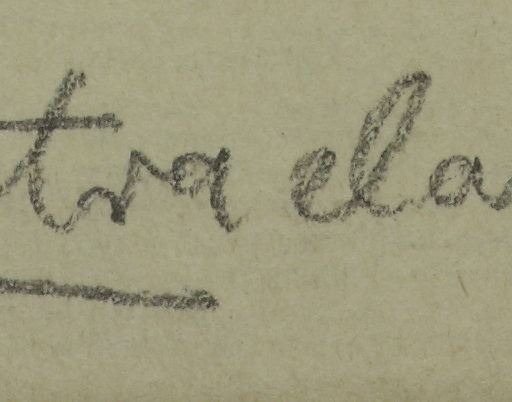 tra ela